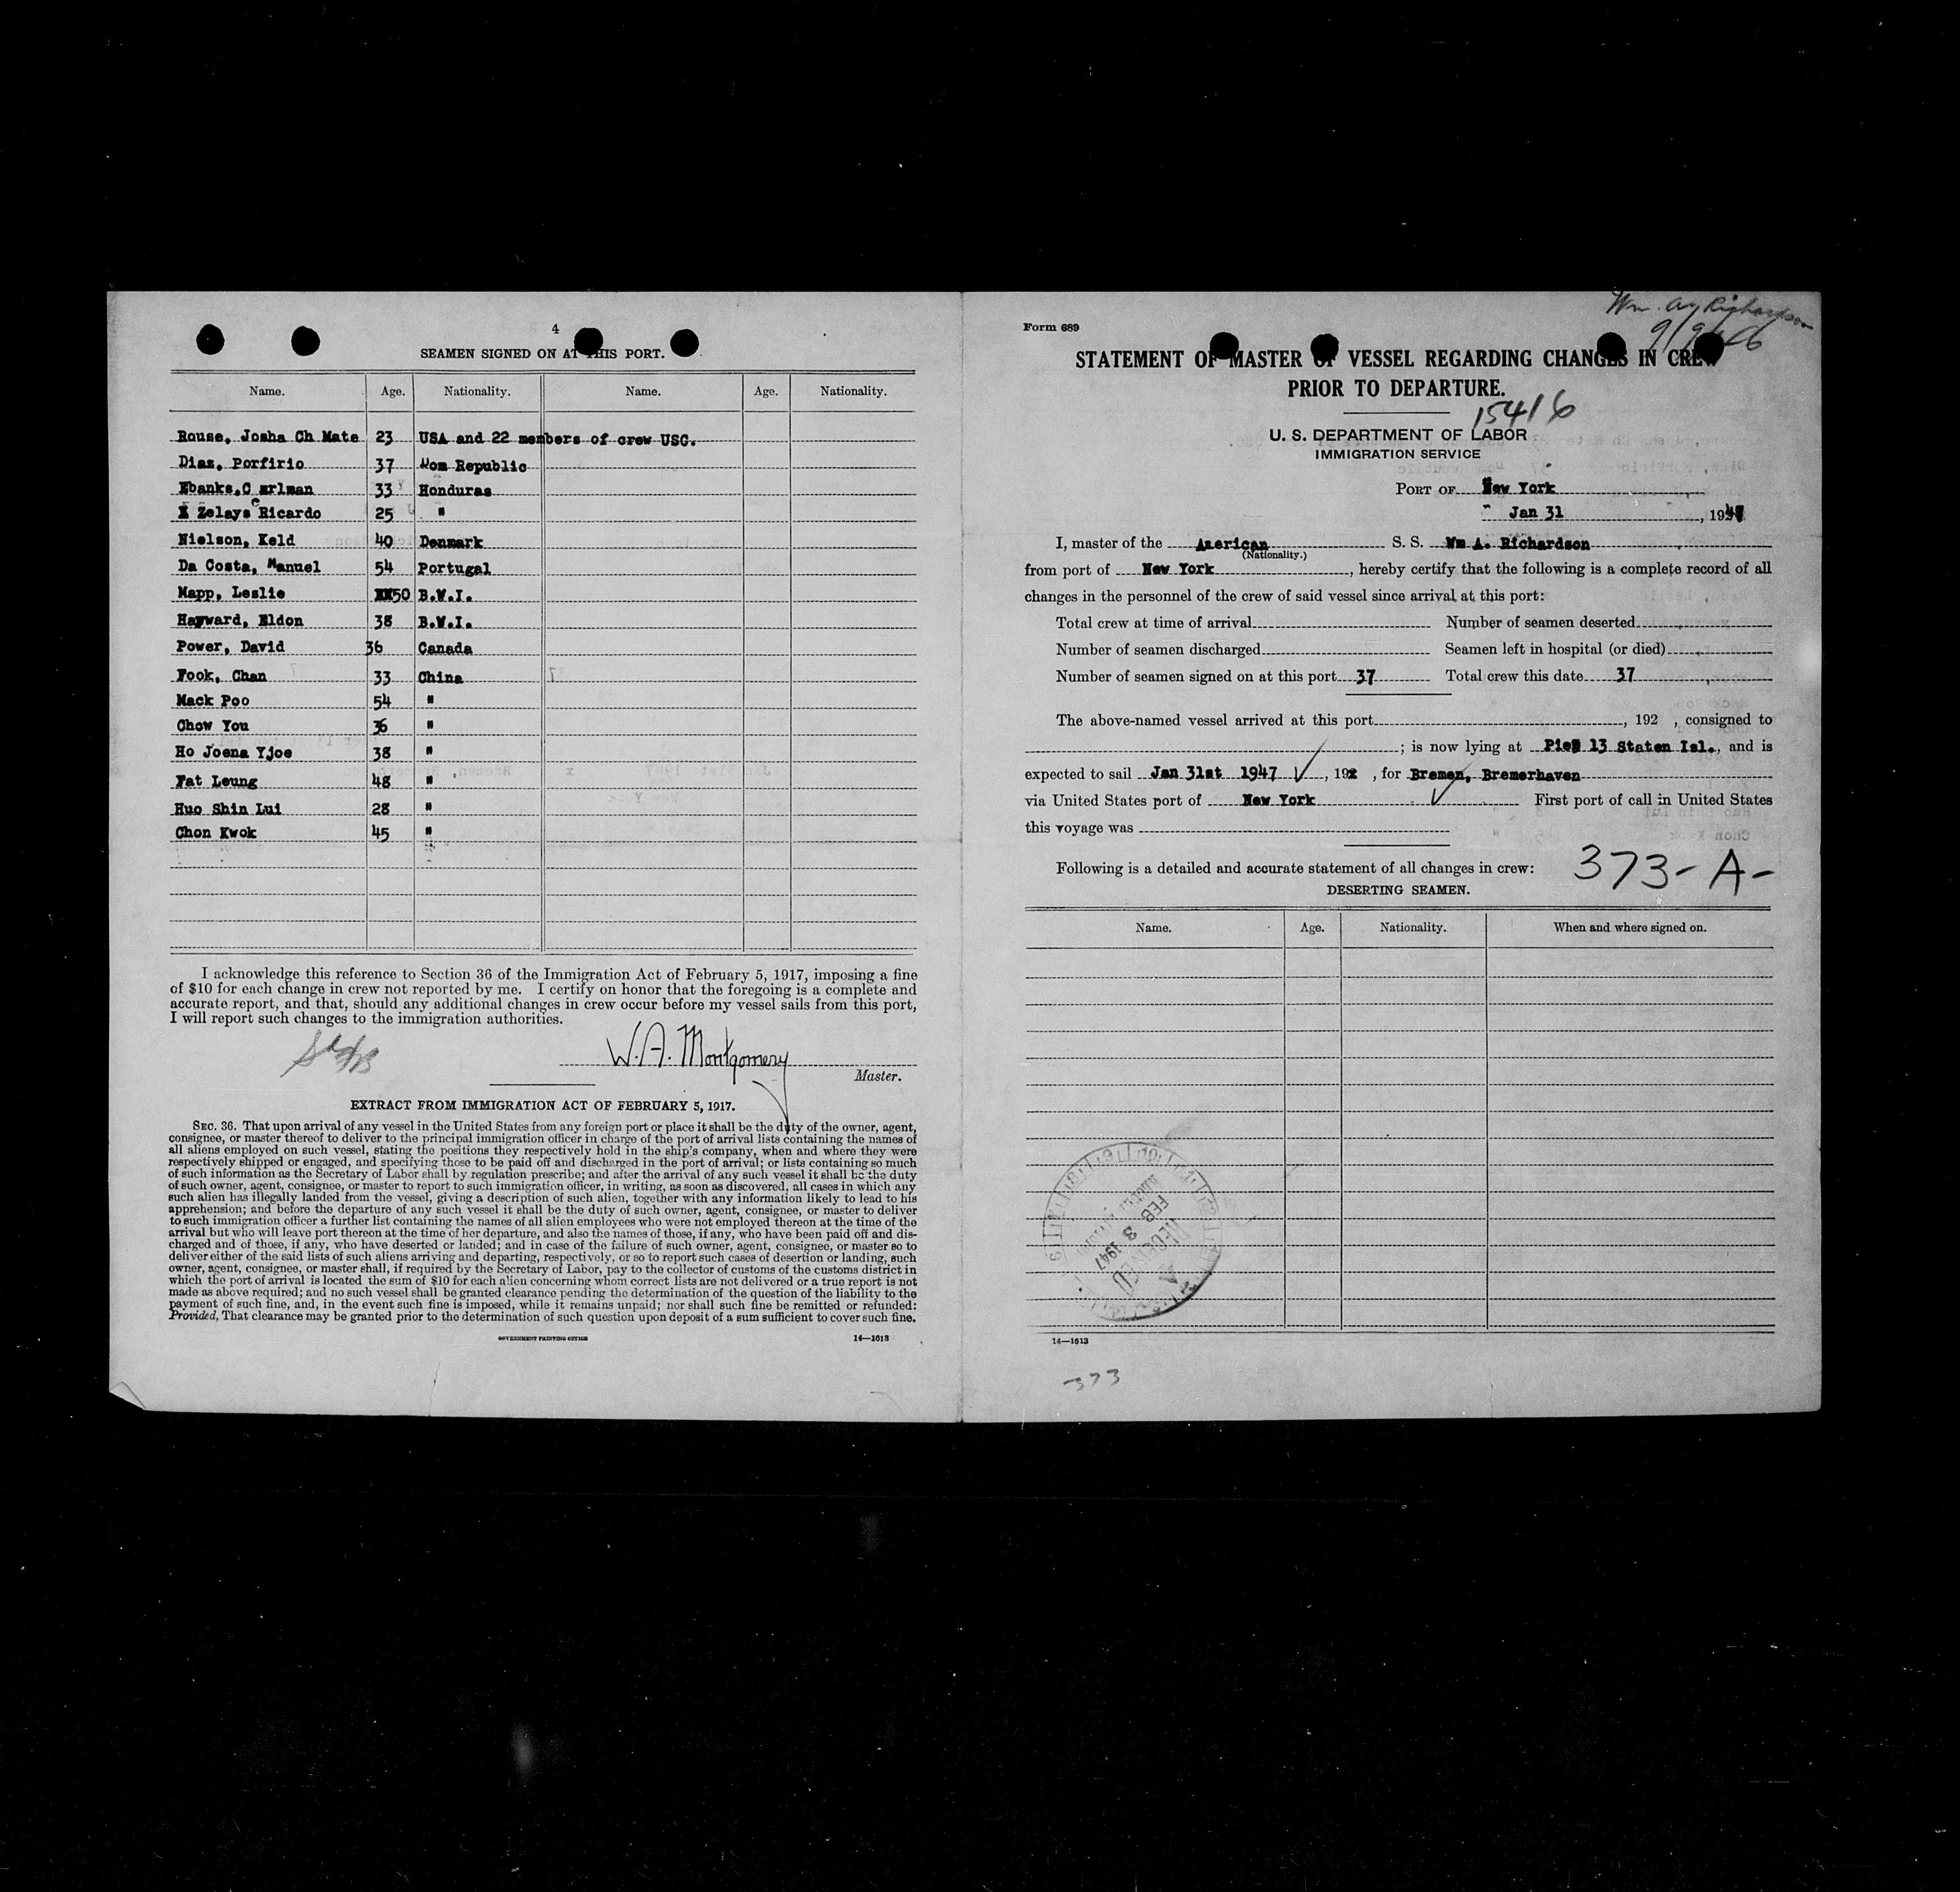 4
SEAMEN SIGNED ON AT THIS PORT.
Name. Age. Nationality. Name. Age. Nationality.
Rouse, Josha Ch Mate 23 USA and 22 members of crew USC.
Diaz, Porfirio 37 Dom Republic
Ebanks,C arlman 33 Honduras
X Zelaya Ricardo 25 "
Nielson, Keld 40 Denmark
Da Costa, Manuel 54 Portugal
Mapp, Leslie XX50 B.W.I.
Hayward, Eldon 38 B.W.I.
Power, David 36 Canada
Fook, Chan 33 China
Mack Poo 54 "
Chow You 36 "
Ho Joena Yjoe 38 "
Fat Leung 48 "
Huo Shin Lui 28 "
Chon Kwok 45 "
I acknowledge this reference to Section 36 of the Immigration Act of February 5, 1917, imposing a fine
of $10 for each change in crew not reported by me. I certify on honor that the foregoing is a complete and
accurate report, and that, should any additional changes in crew occur before my vessel sails from this port,
I will report such changes to the immigration authorities.
W.A. Montgomery
Master.
EXTRACT FROM IMMIGRATION ACT OF FEBRUARY 5, 1917.
SEC. 36. That upon arrival of any vessel in the United States from any foreign port or place it shall be the duty of the owner, agent,
consignee, or master thereof to deliver to the principal immigration officer in charge of the port of arrival lists containing the names of
all aliens employed on such vessel, stating the positions they respectively hold in the ship's company, when and where they were
respectively shipped or engaged, and specifying those to be paid off and discharged in the port of arrival; or lists containing so much
of such information as the Secretary of Labor shall by regulation prescribe; and after the arrival of any such vessel it shall be the duty
of such owner, agent, consignee, or master to report to such immigration officer, in writing, as soon as discovered, all cases in which any
such alien has illegally landed from the vessel, giving a description of such alien, together with any information likely to lead to his
apprehension; and before the departure of any such vessel it shall be the duty of such owner, agent, consignee, or master to deliver
to such immigration officer a further list containing the names of all alien employees who were not employed thereon at the time of the
arrival but who will leave port thereon at the time of her departure, and also the names of those, if any, who have been paid off and dis-
charged and of those, if any, who have deserted or landed; and in case of the failure of such owner, agent, consignee, or master so to
deliver either of the said lists of such aliens arriving and departing, respectively, or so to report such cases of desertion or landing, such
owner, agent, consignee, or master shall, if required by the Secretary of Labor, pay to the collector of customs of the customs district in
which the port of arrival is located the sum of $10 for each alien concerning whom correct lists are not delivered or a true report is not
made as above required; and no such vessel shall be granted clearance pending the determination of the question of the liability to the
payment of such fine, and, in the event such fine is imposed, while it remains unpaid; nor shall such fine be remitted or refunded:
Provided, That clearance may be granted prior to the determination of such question upon deposit of a sum sufficient to cover such fine.
GOVERNMENT PRINTING OFFICE 14—1613
Wm. A Richardson
Form 689
9/9/46
STATEMENT OF MASTER OF VESSEL REGARDING CHANGES IN CREW
PRIOR TO DEPARTURE.
15416
U. S. DEPARTMENT OF LABOR
IMMIGRATION SERVICE
PORT OF New York
Jan 31, 1947
I, master of the American S. S. Wm A. Richardson
(Nationality.)
from port of New York, hereby certify that the following is a complete record of all
changes in the personnel of the crew of said vessel since arrival at this port:
Total crew at time of arrival Number of seamen deserted
Number of seamen discharged Seamen left in hospital (or died)
Number of seamen signed on at this port 37 Total crew this date 37
The above-named vessel arrived at this port , 192 , consigned to
; is now lying at Pier 13 Staten Isl., and is
expected to sail Jan 31st 1947 , 192 , for Bremen, Bremerhaven
via United States port of New York First port of call in United States
this voyage was
Following is a detailed and accurate statement of all changes in crew:
373-A-
DESERTING SEAMEN.
Name. Age. Nationality. When and where signed on.
RECEIVED
FEB 3 1947
14—1613
373